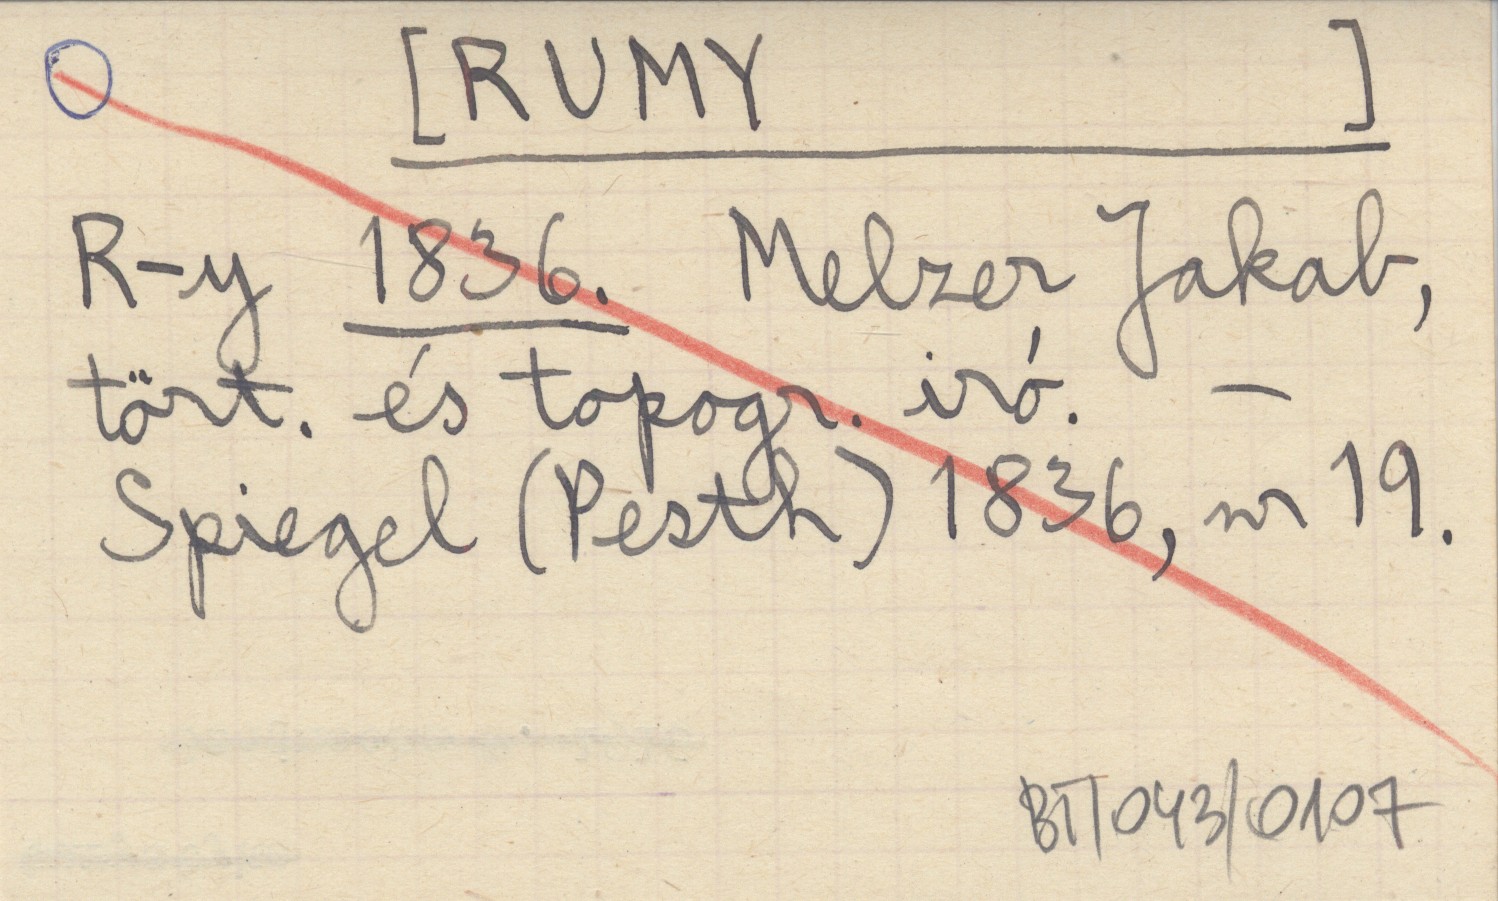 [RUMY ]
R-y 1836. Melzer Jakab,
tört. és topogr. iró. —
Spiegel (Pesth) 1836, nr 19.
BTI/043/0107